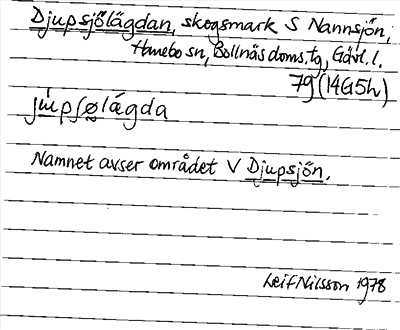 Djupsjölägdan, skogsmark S Nannsjön,
Hanebo sn, Bollnäs doms.tg, Gävl. l.
79 (14G5h)
júpʃølágda
Namnet avser området V Djupsjön.
Leif Nilsson 1978